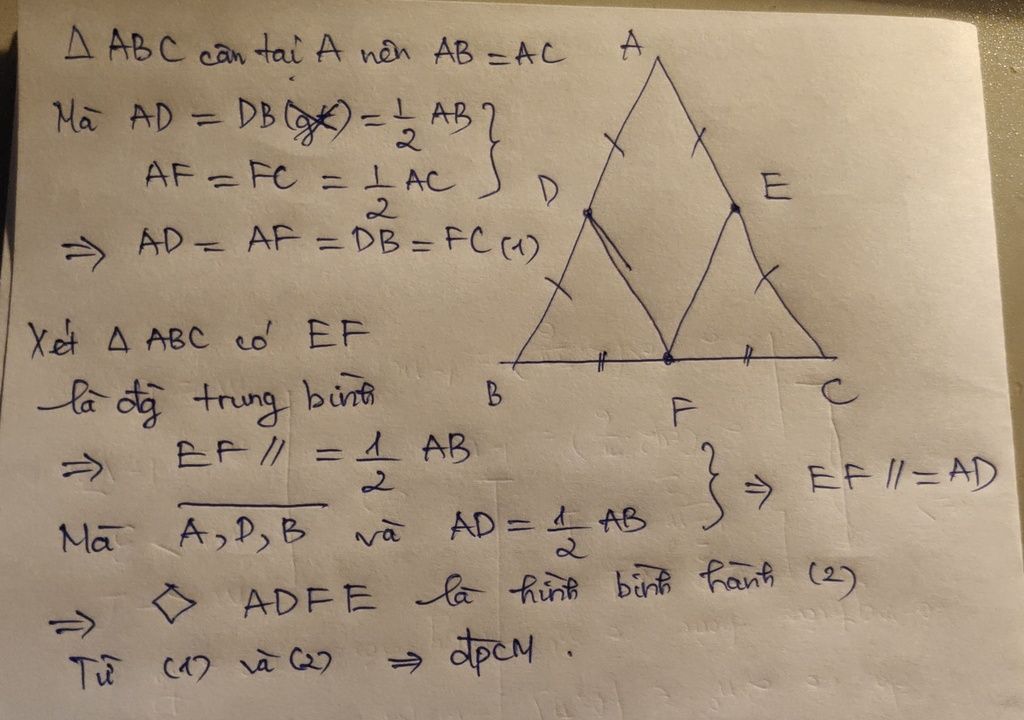 Δ ABC cân tại A nên AB = AC
Mà AD = DB () = 1/2 AB }
AF = FC = 1/2 AC
⇒ AD = AF = DB = FC (1)
Xét Δ ABC có EF
là đg trung bình
⇒ EF // = 1/2 AB
Mà A, D, B và AD = 1/2 AB } ⇒ EF // = AD
⇒ ◇ ADFE là hình bình hành (2)
Từ (1) và (2) ⇒ đpcM.
A
D
E
B
F
C